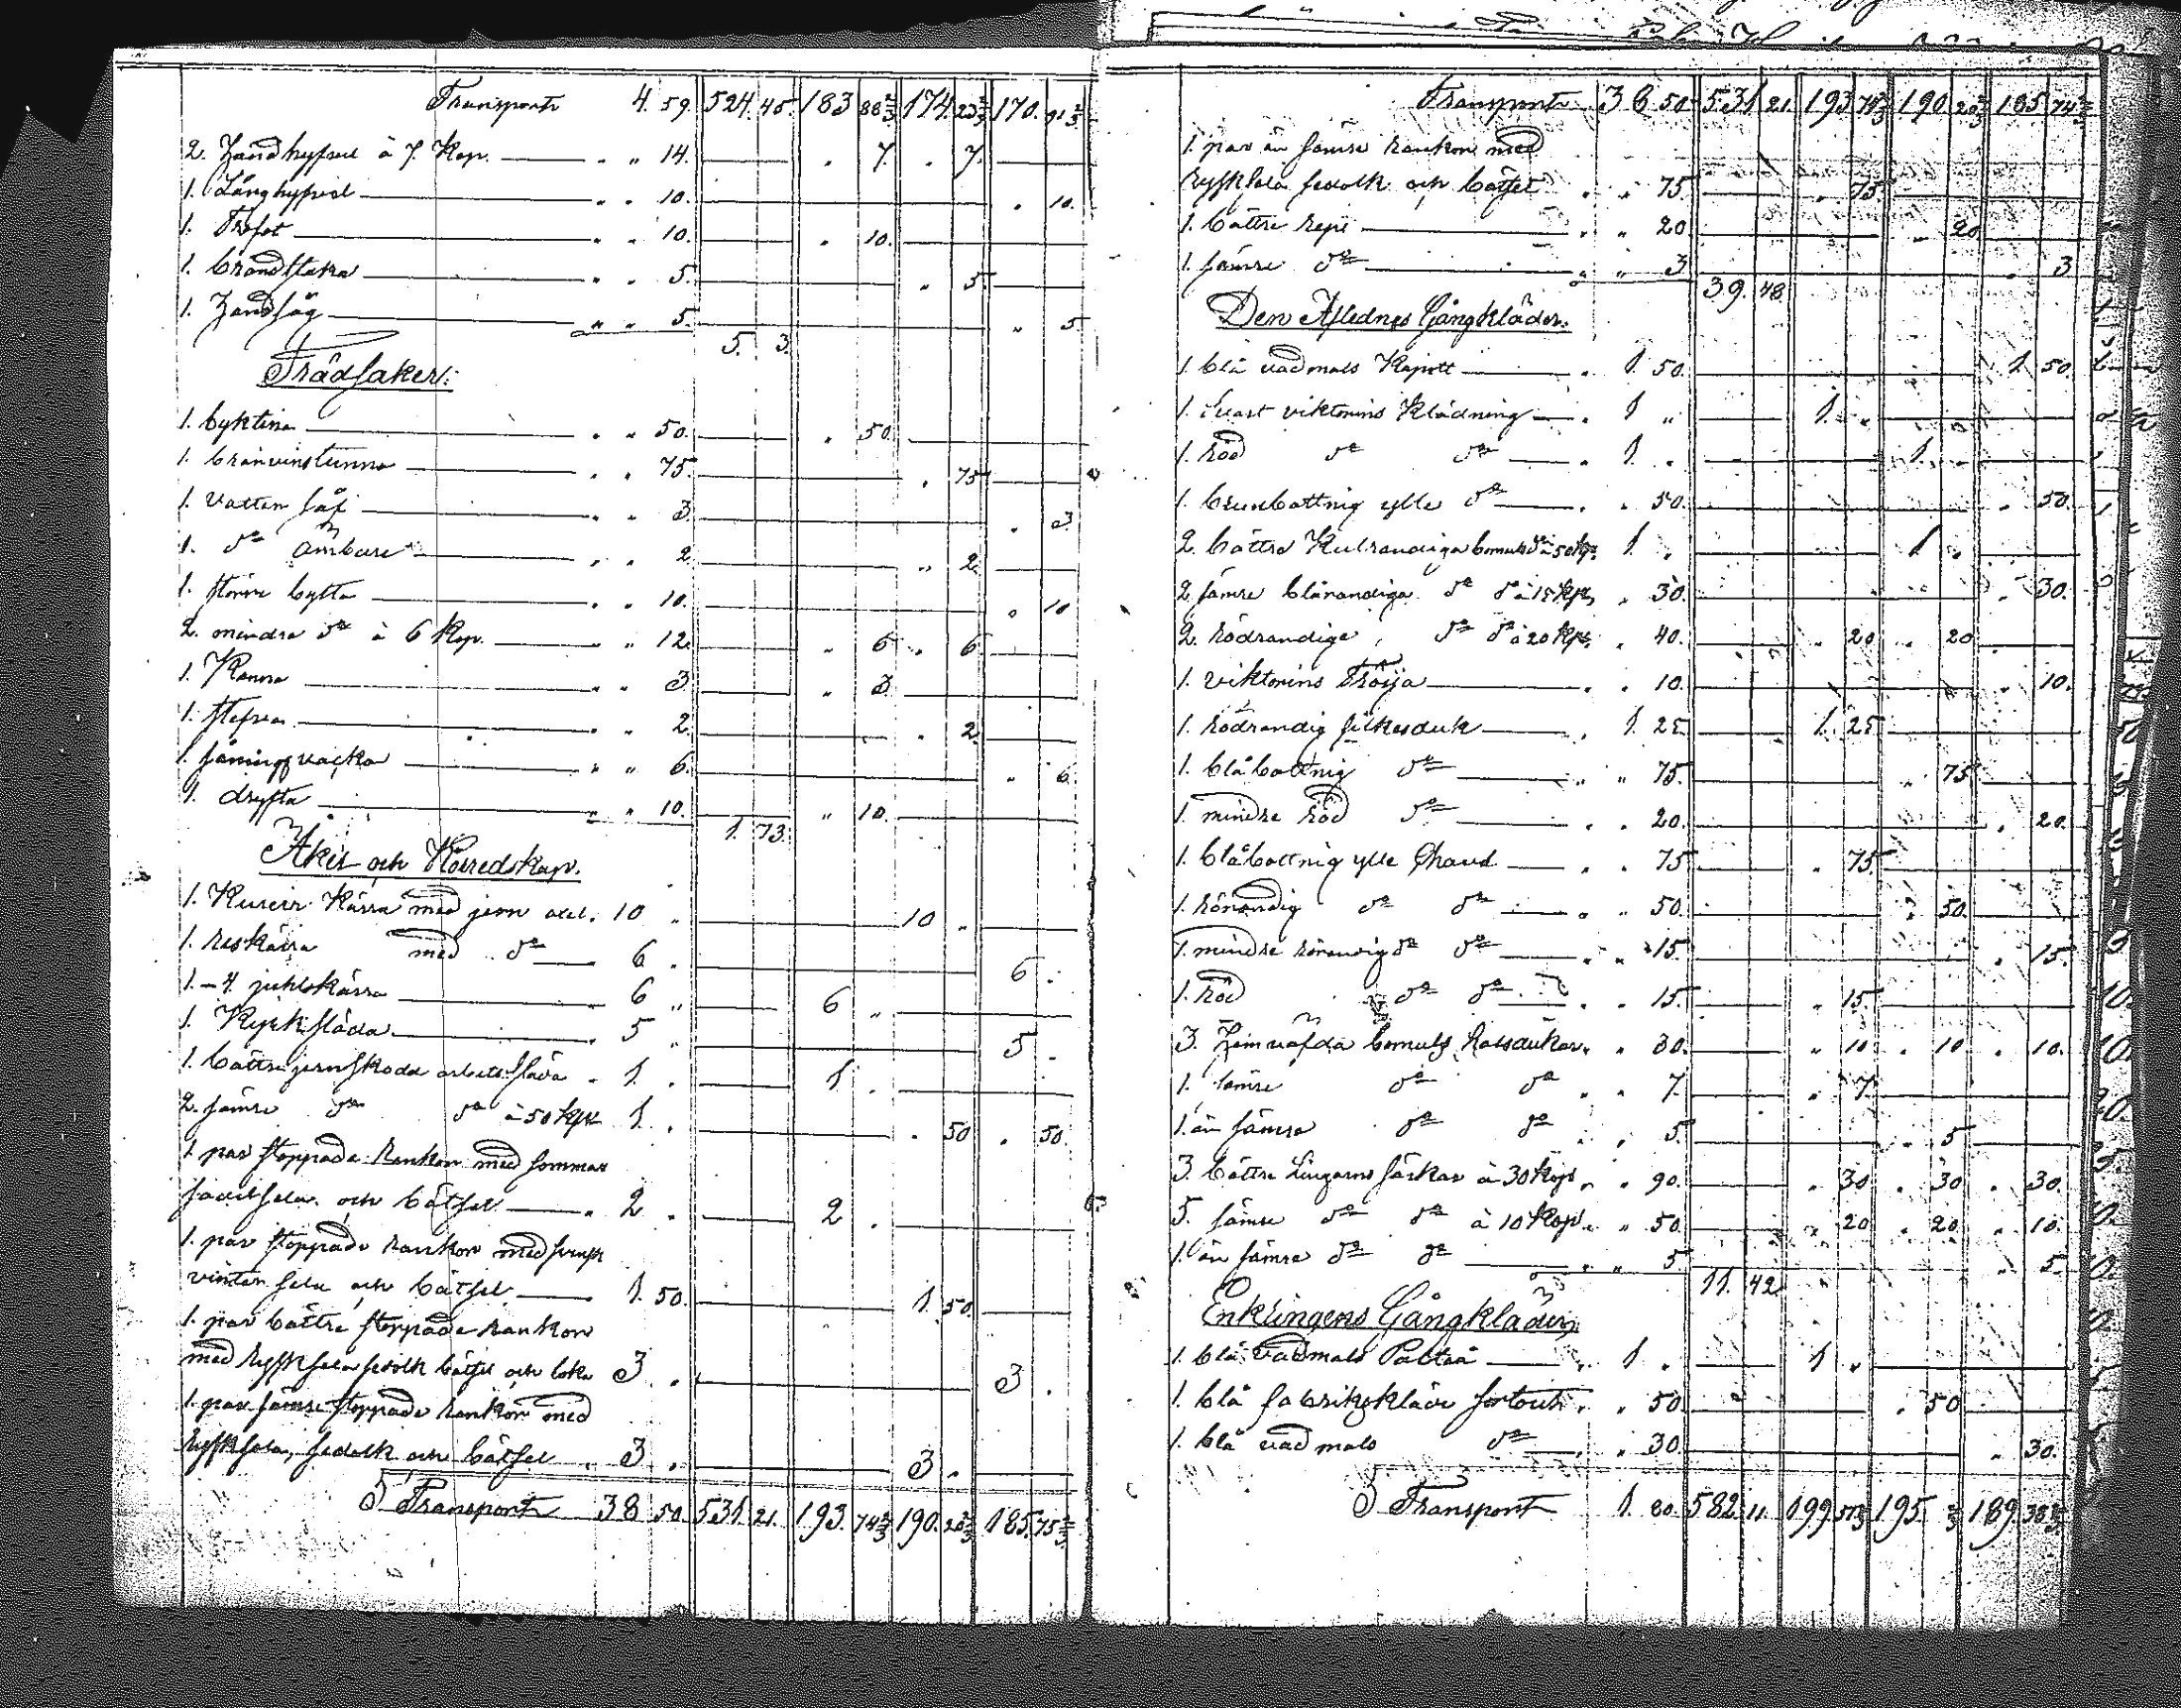 Transport 4. 59. 524. 45. 183 88 2/3 174. 23 2/3 170. 91 2/3
2. Handhyfvel à 7. Kop. " 14. " 7. " 7.
1. Långhyfvel " " 10. " 10.
1. Trefot " " 10. " 10.
1. brandstaka " " 5. " 5.
1. Handsåg " " 5. " 5.
5. 3.
Trädsaker:
1. byktina " " 50. " 50.
1. bränvinstunna " " 75. " 75
1. Vatten så " " 3. " 3.
1. do ämbare " " 2. " 2.
1. större bytta " " 10. " 10
2. mindre do à 6 Kop. " " 12. " 6 " 6
1. Kanna " " 3. " 3.
1. stefva " " 2. " 2.
1. såningsvacka " " 6. " 6.
1. dryfta " " 10. " 10.
1. 73.
Åker och Körredskap.
1. Kureir Kärra med jern axel. 10 " 10 "
1. reskärra med do 6 " 6 "
1. – 4 juhlskärra 6 " 6 "
1. Kyrksläda 5 " 5 "
1. bättre jernskodd arbetssläda 1. " 1 "
2. sämre do do à 50 Kpk 1. " " 50 " 50.
1. par stoppade rankor med sommar
sela och betsel 2 " 2 "
1. par stoppade rankor med
vinter sela och betsel 1. 50. 1. 50.
1. par bättre stoppade rankor
med ryssksela sedolk betsel och loka 3. " 3.
1. par sämre stoppade rankor med
rysksela, sedolk och betsel 3. " 3. "
Transport 38 50. 531. 21. 193. 74 2/3 190. 20 2/3 185. 75 2/3
Transport 38 50 531 21. 193 74 2/3 190. 20 2/3 185 74 2/3
1. par än sämre rankor med
rysksela sedolk och betsel " " 75. " 75.
1. bättre repi " " 20 " 20
1. sämre do " " 3 " 3
39. 48
Den Aflednes Gångkläder.
1. blå vadmals Kapott " 1 50. 1 50.
1. Svart viktorins Klädning " 1 " 1. "
1. röd do do " 1. " 1. "
1. brunbottnig ylle do " " 50. " 50.
2. bättre Kulrandiga bomuls do à 50 Kp. 1. " 1 "
2. sämre blårandiga do do à 15 Kpk " 30. " 30.
2. rödrandige do do à 20 Kpk. " 40. " 20 " 20
1. viktorins Tröija " " 10. " 10.
1. rödrandig silkesduk " 1. 25. 1. 25.
1. blåbottnig do " " 75. " 75.
1. mindre röd do " " 20. " 20.
1. blåbottnig ylle Shavl " " 75 " 75.
1. rörandig do do " " 50. " 50.
1. mindre rörandig do do " " 15. " 15.
1. röd do do " " 15. " 15.
3. Hemväfda bomuls halsdukar " " 30. " 10 " 10 " 10.
1. sämre do do " " 7. " 7.
1. än sämre do do " " 5. " 5
3. bättre Lingarns särkar à 30 Kop. " " 90. " 30 " 30 " 30.
5. sämre do do à 10 Kop. " " 50. " 20 " 20 " 10.
1. än sämre do do " " 5. " 5.
11. 42
Enklingens Gångkläder
1. blå vadmals Palttå " 1 " 1 "
1. blå fabrikskläde sortout " " 50 " 50
1. blå vadmals do " " 30. " 30.
Transport 1. 80. 582. 11. 199 195. 189.